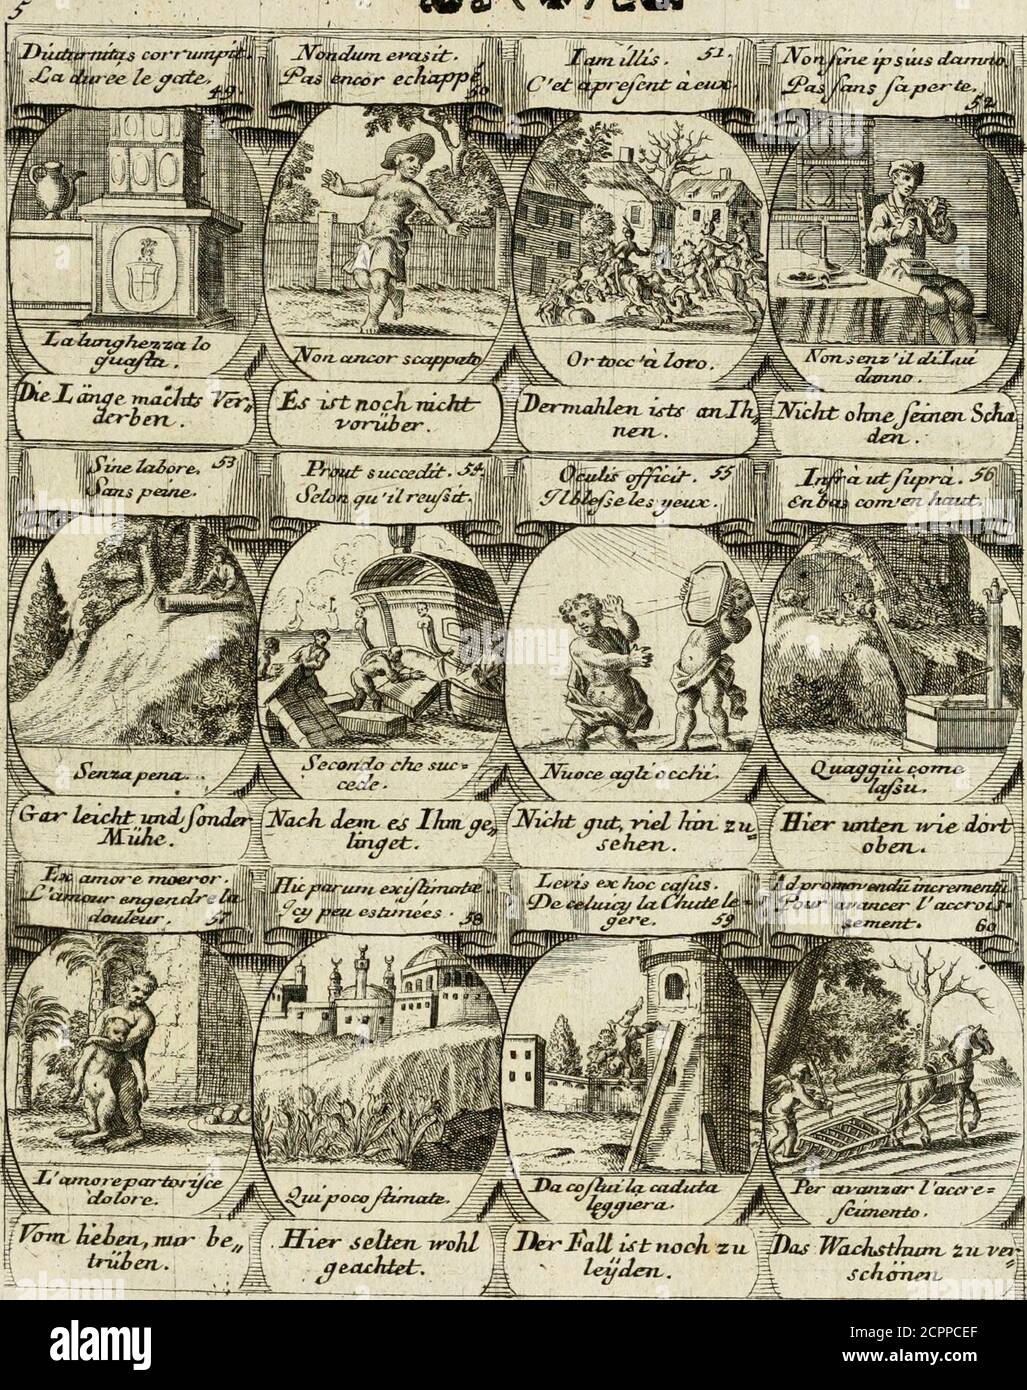 5
Diuturnitas corrumpit.
La duree le gate.
49.
Nondum evasit.
Pas encor echappé
50
Iam illis. 51.
C'et à present à eux.
Non sine ipsius damno.
Pas sans sa perte.
52
La lunghezza lo
guasta.
Non ancor scappato
Or tocc'à loro.
Non senz'il di Lui
danno.
Die Länge machts Ver„
derben.
Es ist noch nicht
vorüber.
Dermahlen ists an Ih„
nen.
Nicht ohne seinen Scha
den.
Sine labore. 53
Sans peine.
Prout succedit. 54.
Selon qu'il reussit.
Oculis officit. 55
Il blesse les yeux.
Infrà ut suprà. 56
En bas com'en haut.
Senza pena.
Secondo che suc=
cede.
Nuoce agli occhi.
Quaggiù come
lassu.
Gar leicht und sonder
Mühe.
Nach dem es Ihm ge„
linget.
Nicht gut, viel hin zu
sehen.
Hier unten wie dort
oben.
Ex amore moeror.
L'amour engendre la
douleur. 57
Hic parum existimatæ
Icy peu estimées. 58
Levis ex hoc casus.
De celuicy la Chute le=
gere. 59
Ad promovendũ incrementũ
Pour avancer l'accrois=
sement. 60
L'amore partorisce
dolore.
Qui poco stimate.
Da costui la caduta
leggiera.
Per avanzar l'accre=
scimento.
Vom lieben, nur be„
trüben.
Hier selten wohl
geachtet.
Der Fall ist noch zu
leÿden.
Das Wachsthum zu ver
schönen
alamy
alamy
Image ID: 2CPPCEF
www.alamy.com